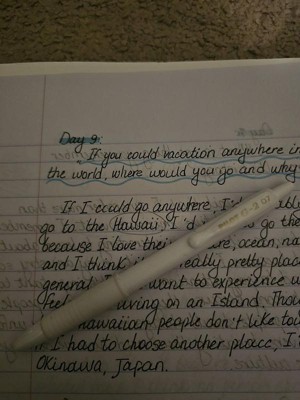 Day 9:
If you could vacation anywhere in
the world, where would you go and why
If I could go anywhere, I'd
go to the Hawaii, I'd
because I love their ocean,
and I think really pretty
general. want to experience
living on an Island.
hawaiian people don't like
I had to choose another place,
Okinawa, Japan.